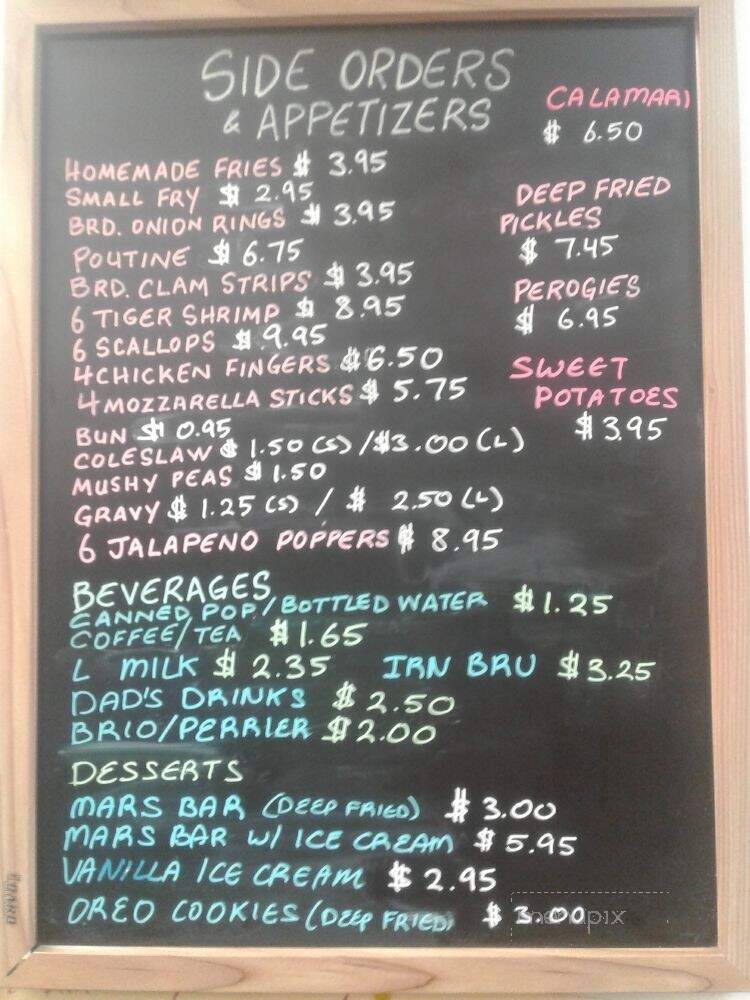 SIDE ORDERS
& APPETIZERS
HOMEMADE FRIES $ 3.95
SMALL FRY $ 2.95
BRD. ONION RINGS $ 3.95
POUTINE $ 6.75
BRD. CLAM STRIPS $ 3.95
6 TIGER SHRIMP $ 8.95
6 SCALLOPS $ 9.95
4 CHICKEN FINGERS $ 6.50
4 MOZZARELLA STICKS $ 5.75
BUN $ 0.95
COLESLAW $ 1.50 (S) / $3.00 (L)
MUSHY PEAS $ 1.50
GRAVY $ 1.25 (S) / $ 2.50 (L)
6 JALAPENO POPPERS $ 8.95
CALAMARI
$ 6.50
DEEP FRIED
PICKLES
$ 7.45
PEROGIES
$ 6.95
SWEET
POTATOES
$ 3.95
BEVERAGES
CANNED POP / BOTTLED WATER $1.25
COFFEE/TEA $1.65
L MILK $ 2.35 IRN BRU $3.25
DAD'S DRINKS $ 2.50
BRIO/PERRIER $2.00
DESSERTS
MARS BAR (DEEP FRIED) $ 3.00
MARS BAR W/ ICE CREAM $ 5.95
VANILLA ICE CREAM $ 2.95
OREO COOKIES (DEEP FRIED) $ 3.00
menupix